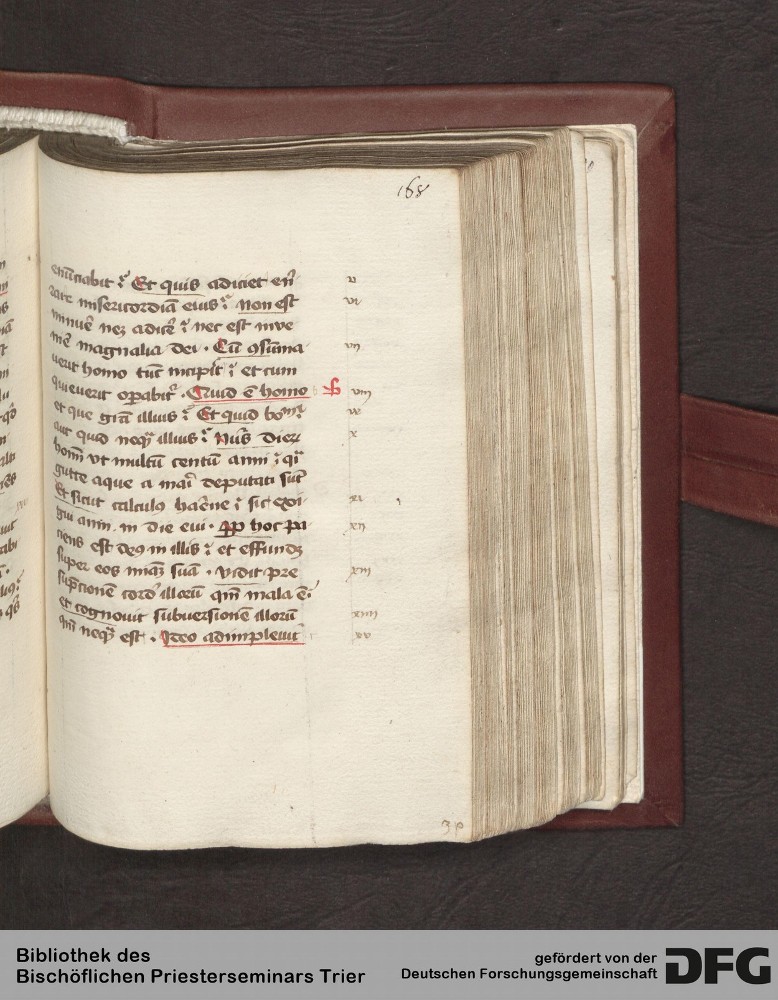 168
enūciabit ? Et quis adiciet en̄
rare misericordiā eius ? non est
minuē neqꝫ adicē ? nec est inve
nīe magnalia dei . Cū ꝯsūma
uerit homo tūc incipit ? et cum
quieuerit opabit . Quid ē homo
et que grā illius ? Et quid bonū
aut quid neqꝫ illius ? Nūs dierū
homī ut multū centū anni ? qͣi
gutte aque a mari deputati sūt
Et sicut calculꝰ harēne ? sic exi
gui anni in die eui . ꝓp hoc pa
ciens est deꝰ in illis ? et effundit
super eos mīaꝫ suā . vidit pre
sūpcionē cord illorū qm̄ mala ē
et cognouit subuersionē illorū
qm̄ neqꝫ est . Ideo adimpleuit
v
vi
vii
viii
ix
x
xi
xii
xiii
xiiii
xv
Bibliothek des
Bischöflichen Priesterseminars Trier
gefördert von der
Deutschen Forschungsgemeinschaft
DFG